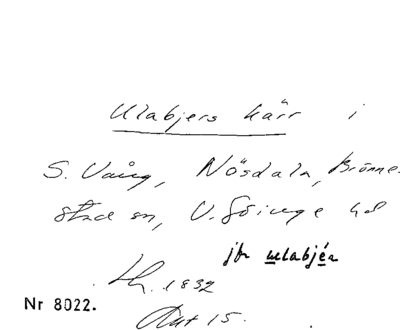 Ulabjers kärr i
S. Vång, Nösdala, Brönne-
stad sn, V. Göinge hd
jfr ulabjéa
Lh. 1832
Akt 15.
Nr 8022.